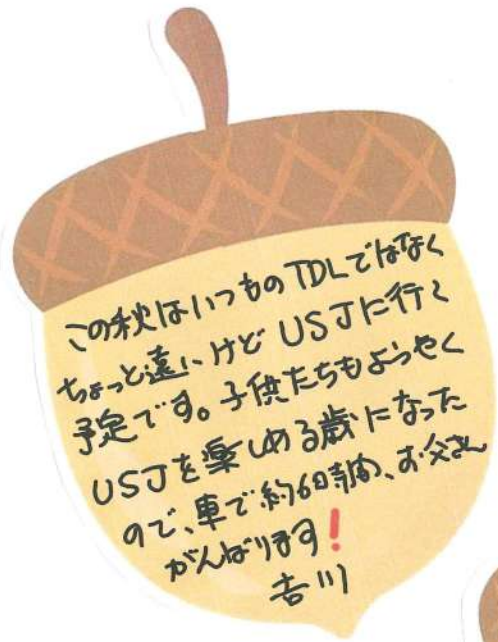 この秋はいつものTDLではなく
ちょっと遠いけどUSJに行く
予定です。子供たちもようやく
USJを楽しめる歳になった
ので、車で約6時間、お父さん
がんばります!
吉川